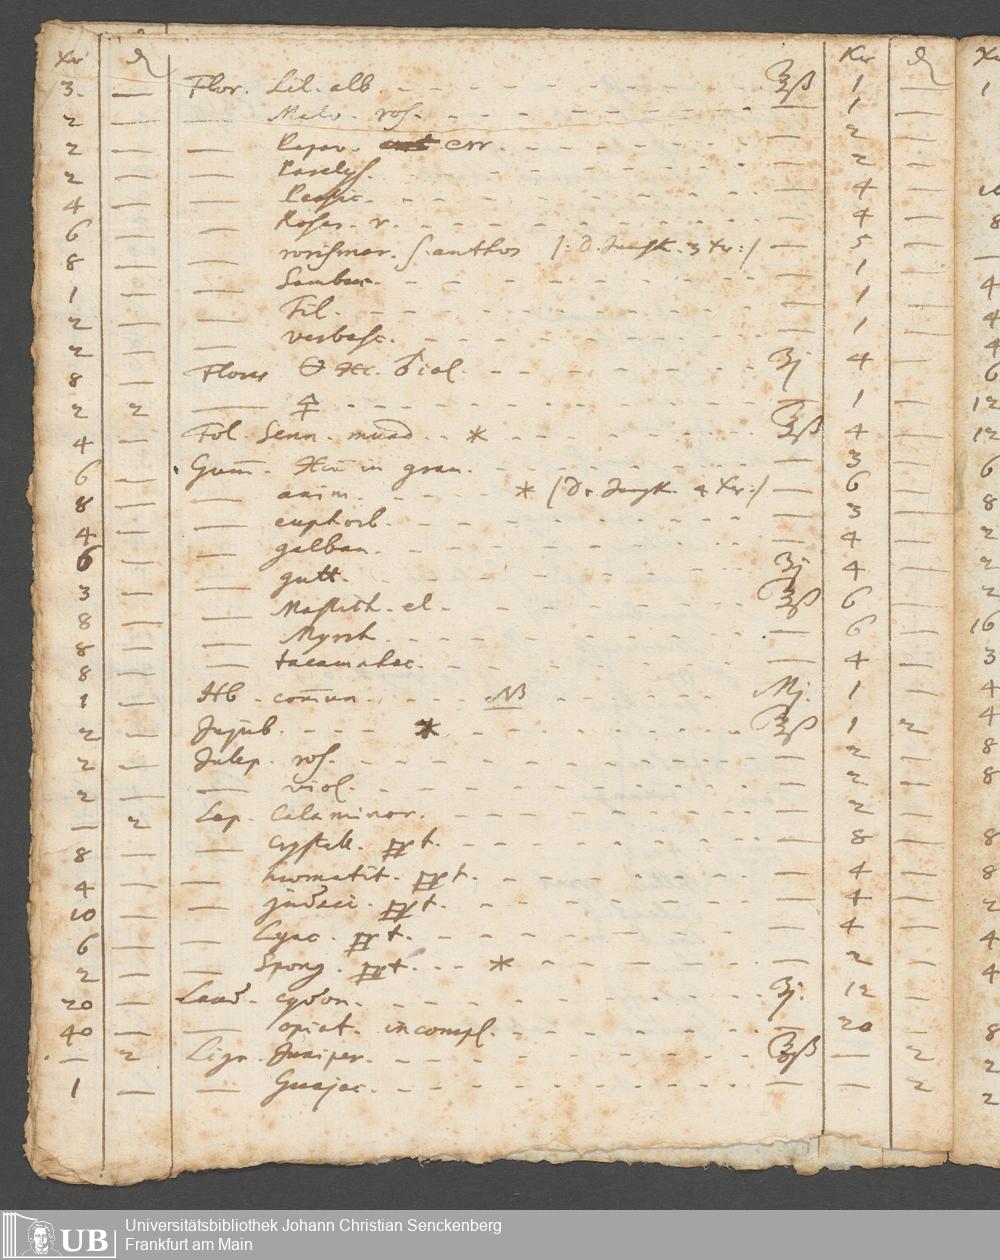 Xr ₰ Kr ₰ Xr
3. — Flor. Lil. alb. - - - ℥ß 1 — 1
2 — — Malv. ros. - - - — 1 —
2 — — Papav. err. - - - — 2 —
2 — — Paralys. - - - — 2 —
4 — — Persic. - - - — 4 — 10
6 — — Rosar. r. - - - — 4 — 8
8 — — rorismar. s. anthos /: D. Jungk. 3 Xr :/ — 5 — —
1 — — Sambuc. - - - — 1 — 4
2 — — Til. - - - — 1 — 4
2 — — verbasc. - - - — 1 — 4
8 — Flores - - - ʒj 4 — 6
2 2 — 🜍 - - - — 1 — 12
4 — Fol. Senn. mund. - * - - - ℥ß 4 — 12
6 — Gum̄. in gran. - - - — 3 — 6
8 — — anim. * /: D. Jungk. 4 Xr :/ — 6 — 8
4 — — euphorb. - - - — 3 — 2
6 — — galban. - - - — 4 — 2
3 — — gutt. - - - ʒj 4 — 2
8 — — Mastich. el. - - - ℥ß 6 — 16
8 — — Myrrh. - - - — 6 — 3
8 — — tacamahac. - - - — 4 — 4
1 — Hb. com̄un. - - - NB Mj. 1 — 4
2 — Jujub. - - - * - - - ℥ß 1 2 8
2 — Julep. ros. - - - — 2 — 8
2 — — viol. - - - — 2 —
— 2 Lap. Calaminar. - - - — 2 —
8 — — Crystall. ppt. - - - — 8 — 8
4 — — hæmatit. ppt. - - - — 4 — 8
10 — — judaic. ppt. - - - — 4 — 2
6 — — Lync. ppt. - - - — 4 — 4
2 — — Spong. ppt. - - - * - - - — 2 — 4
20 — Laud. cydon. - - - ʒj. 12 —
40 — — opiat. incompl. - - - — 20 — 8
— 2 Lign. Juniper. - - - ℥ß — 2 2
1 — — Guajac. - - - — — 2 2
UB Universitätsbibliothek Johann Christian Senckenberg
Frankfurt am Main